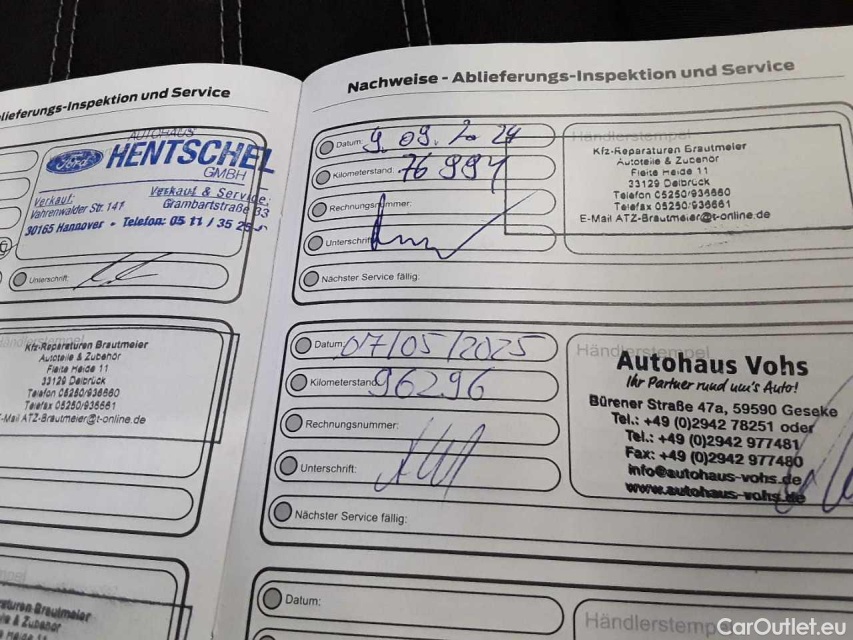 blieferungs-Inspektion und Service
AUTOHAUS
Ford HENTSCHEL
GMBH
Verkauf:
Vahrenwalder Str. 141
Verkauf & Service:
Grambartstraße 33
30165 Hannover • Telefon: 05 11 / 35 25
Unterschrift:
Kfz-Reparaturen Brautmeier
Autoteile & Zubehör
Fleite Heide 11
33129 Delbrück
Telefon 05250/936660
Telefax 05250/936661
E-Mail ATZ-Brautmeier@t-online.de
aturen Brautmeier
le & Zubehör
Heide 11
Nachweise - Ablieferungs-Inspektion und Service
Datum: 9.09.2024
Kilometerstand: 76 994
Rechnungsnummer:
Unterschrift
Nächster Service fällig:
Händlerstempel
Kfz-Reparaturen Brautmeier
Autoteile & Zubehör
Fleite Heide 11
33129 Delbrück
Telefon 05250/936660
Telefax 05250/936661
E-Mail ATZ-Brautmeier@t-online.de
Datum: 07/05/2025
Kilometerstand: 96296
Rechnungsnummer:
Unterschrift:
Nächster Service fällig:
Händlerstempel
Autohaus Vohs
Ihr Partner rund um's Auto!
Bürener Straße 47a, 59590 Geseke
Tel.: +49 (0)2942 78251 oder
Tel.: +49 (0)2942 977481
Fax: +49 (0)2942 977480
info@autohaus-vohs.de
www.autohaus-vohs.de
Datum:
Händlerstemp
CarOutlet.eu